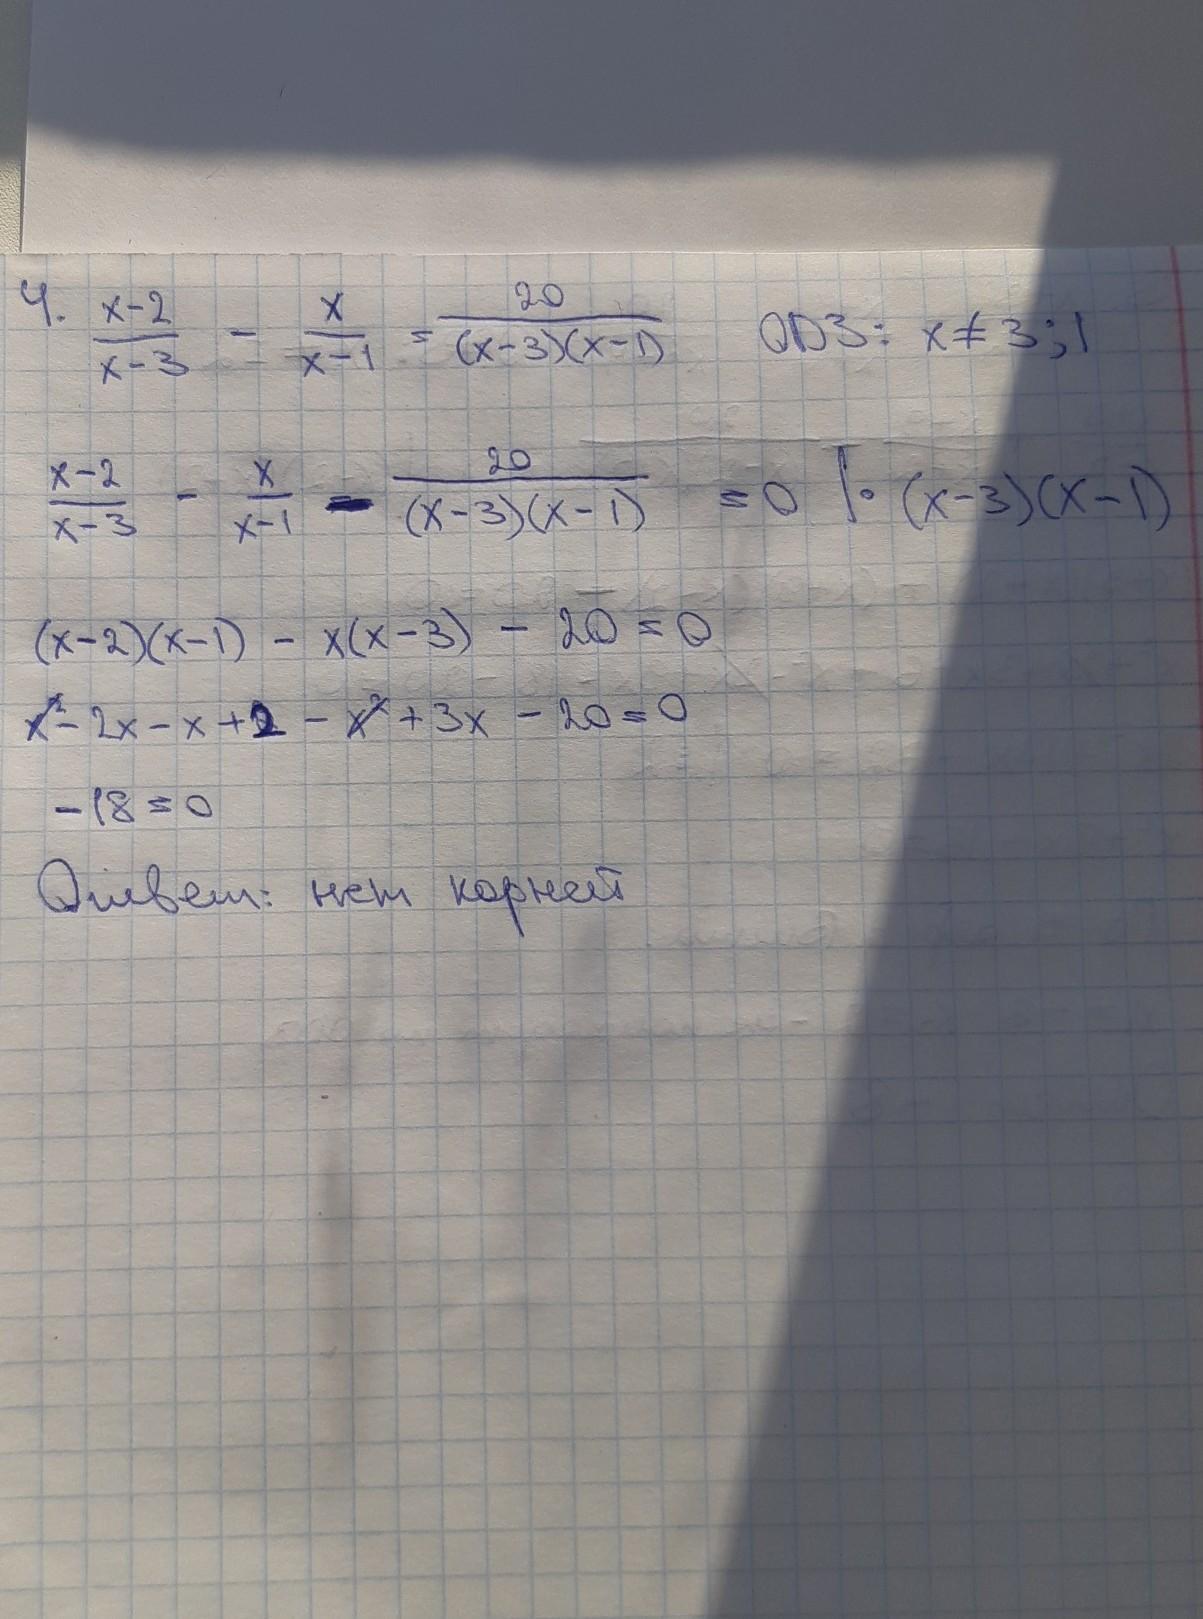 4. \frac{x-2}{x-3} - \frac{x}{x-1} = \frac{20}{(x-3)(x-1)} ОДЗ: x ≠ 3; 1
\frac{x-2}{x-3} - \frac{x}{x-1} - \frac{20}{(x-3)(x-1)} = 0 | · (x-3)(x-1)
(x-2)(x-1) - x(x-3) - 20 = 0
x² - 2x - x + 2 - x² + 3x - 20 = 0
-18 = 0
Ответ: нет корней